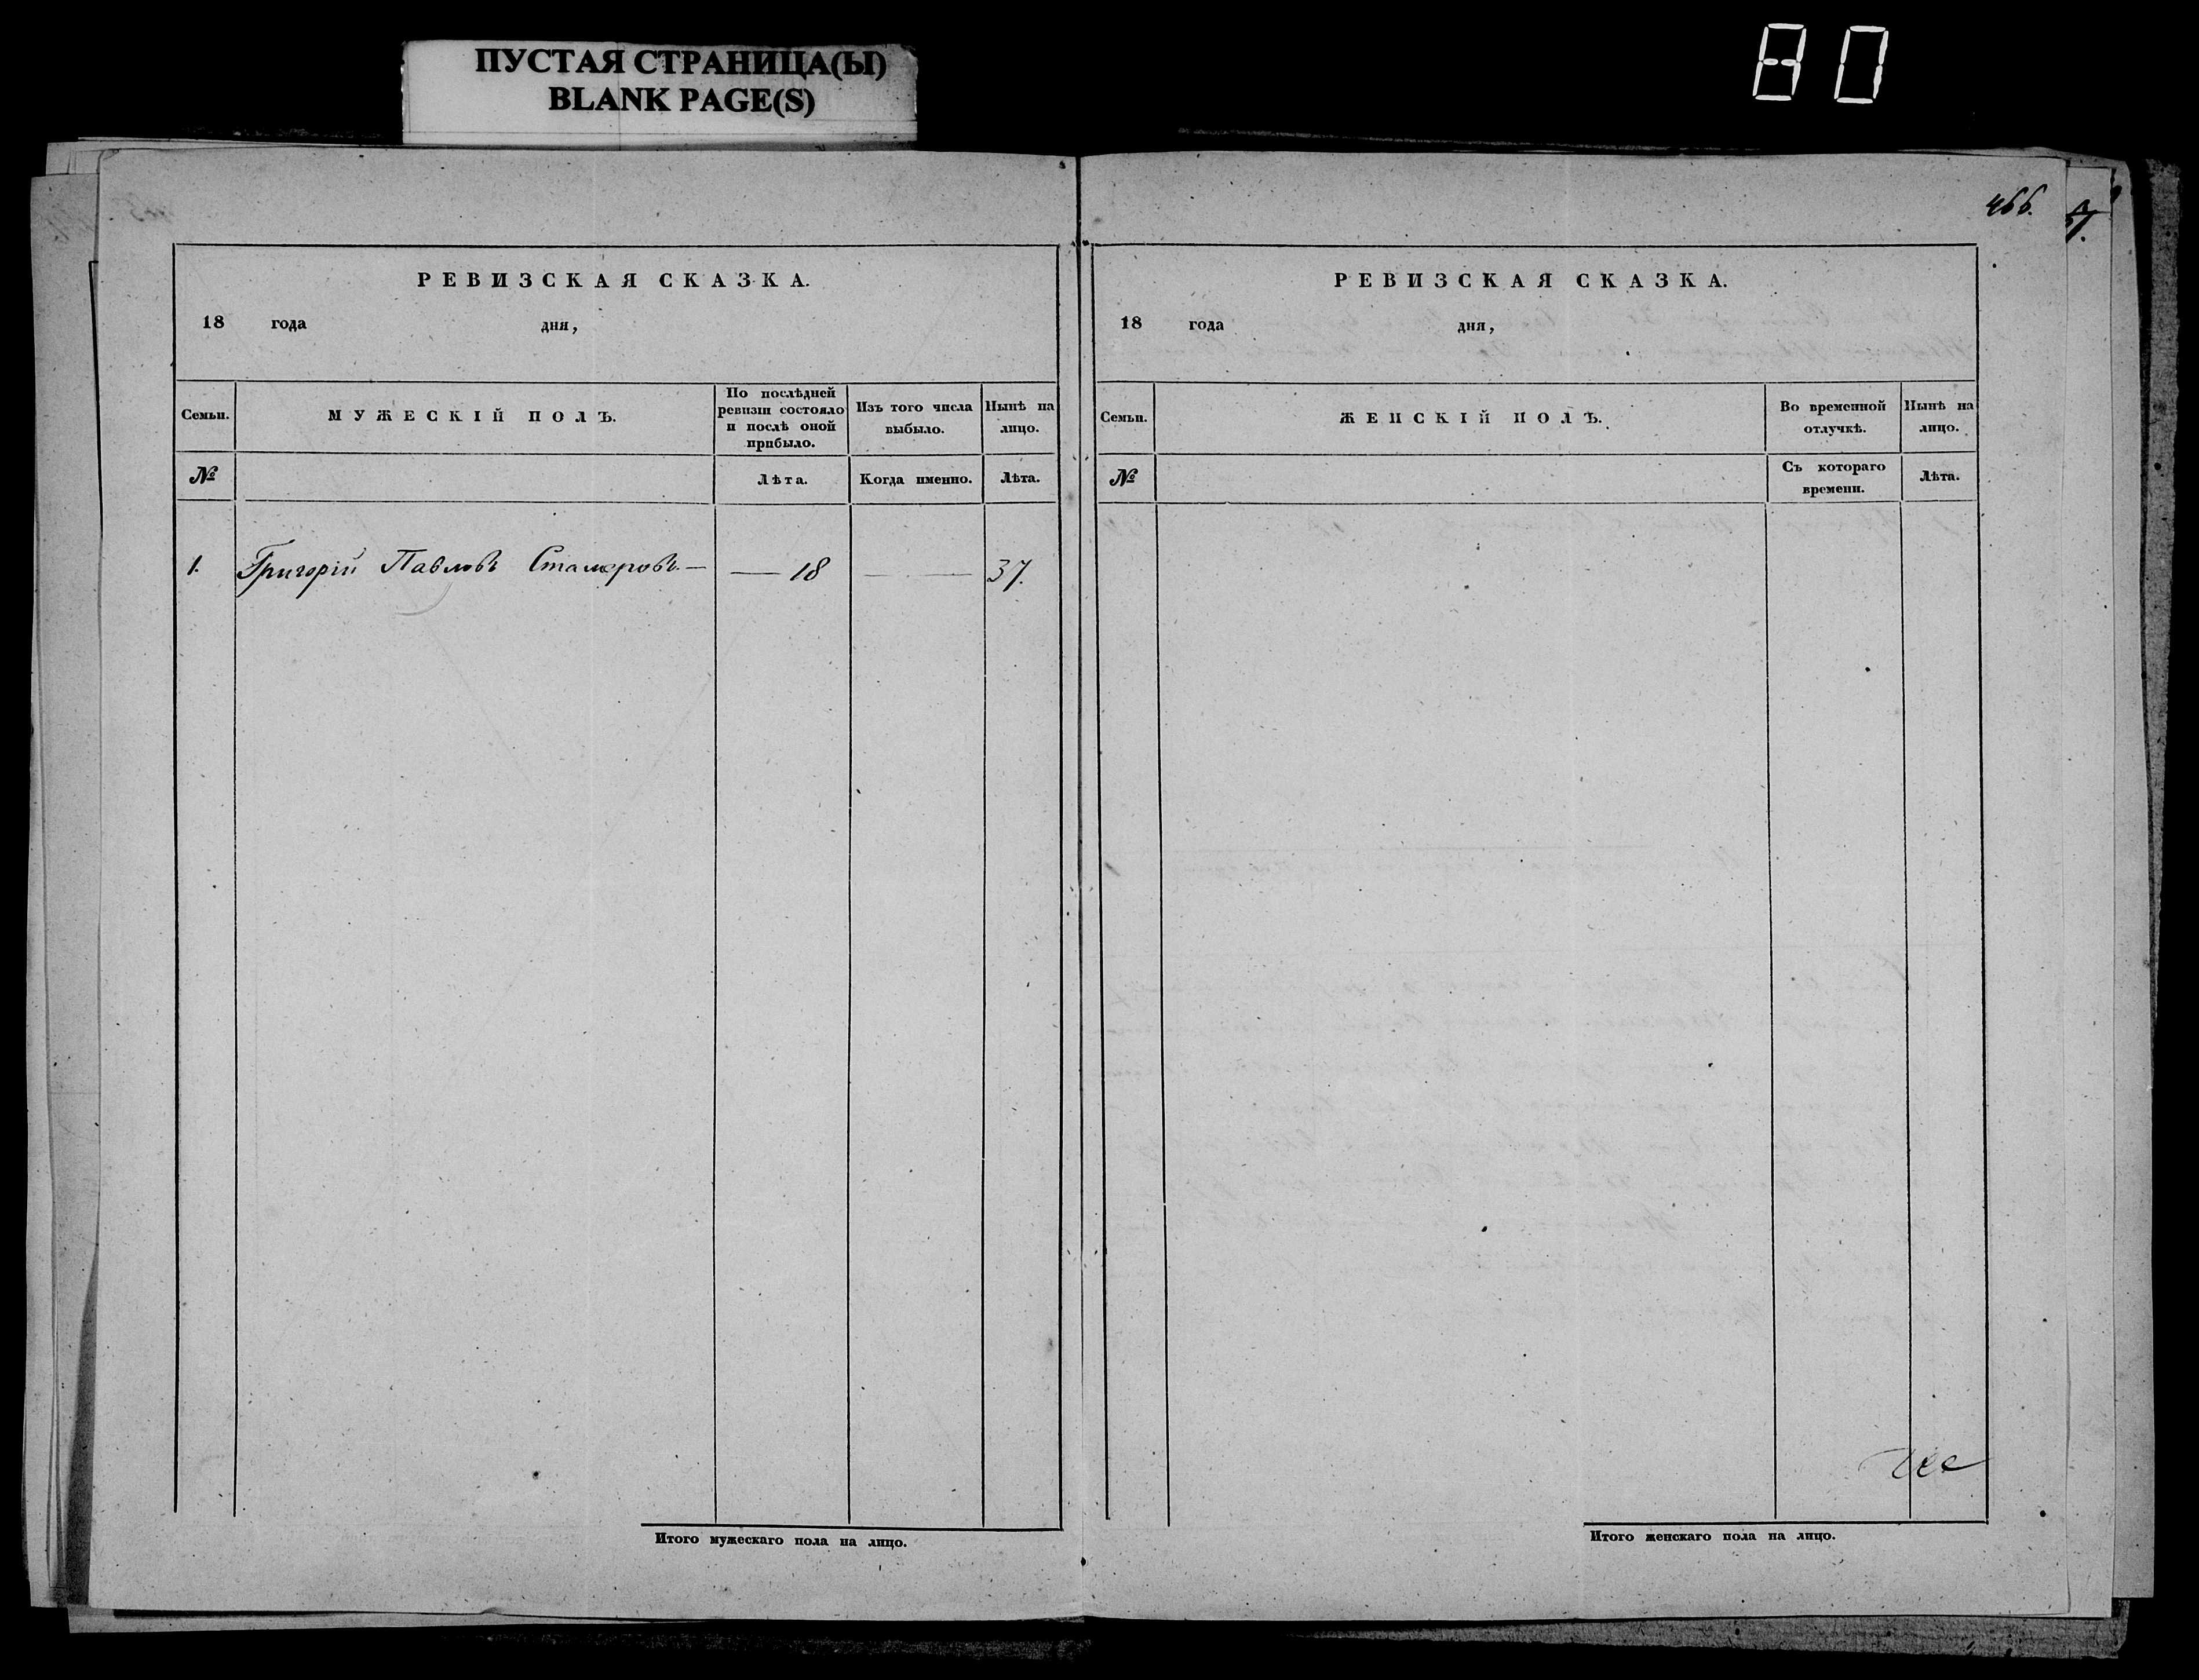 ПУСТАЯ СТРАНИЦА(Ы)
BLANK PAGE(S)
80
466.
РЕВИЗСКАЯ СКАЗКА.
18 года дня,
Семьи. МУЖЕСКІЙ ПОЛЪ. По послѣдней ревизіи состояло и послѣ оной прибыло. Изъ того числа выбыло. Нынѣ на лицо.
№ Лѣта. Когда именно. Лѣта.
1. Григорій Павловъ — 18 — 37.
Итого мужескаго пола на лицо.
РЕВИЗСКАЯ СКАЗКА.
18 года дня,
Семьи. ЖЕНСКІЙ ПОЛЪ. Во временной отлучкѣ. Нынѣ на лицо.
№ Съ котораго времени. Лѣта.
Итого женскаго пола на лицо.